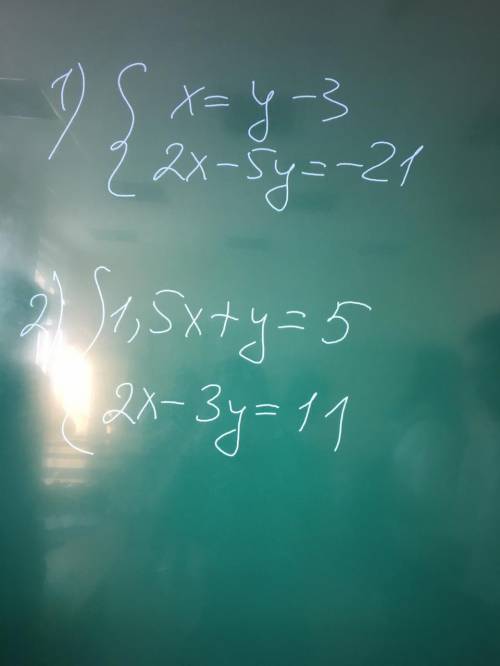 1) { x = y - 3
2x - 5y = -21
2) { 1,5x + y = 5
2x - 3y = 11